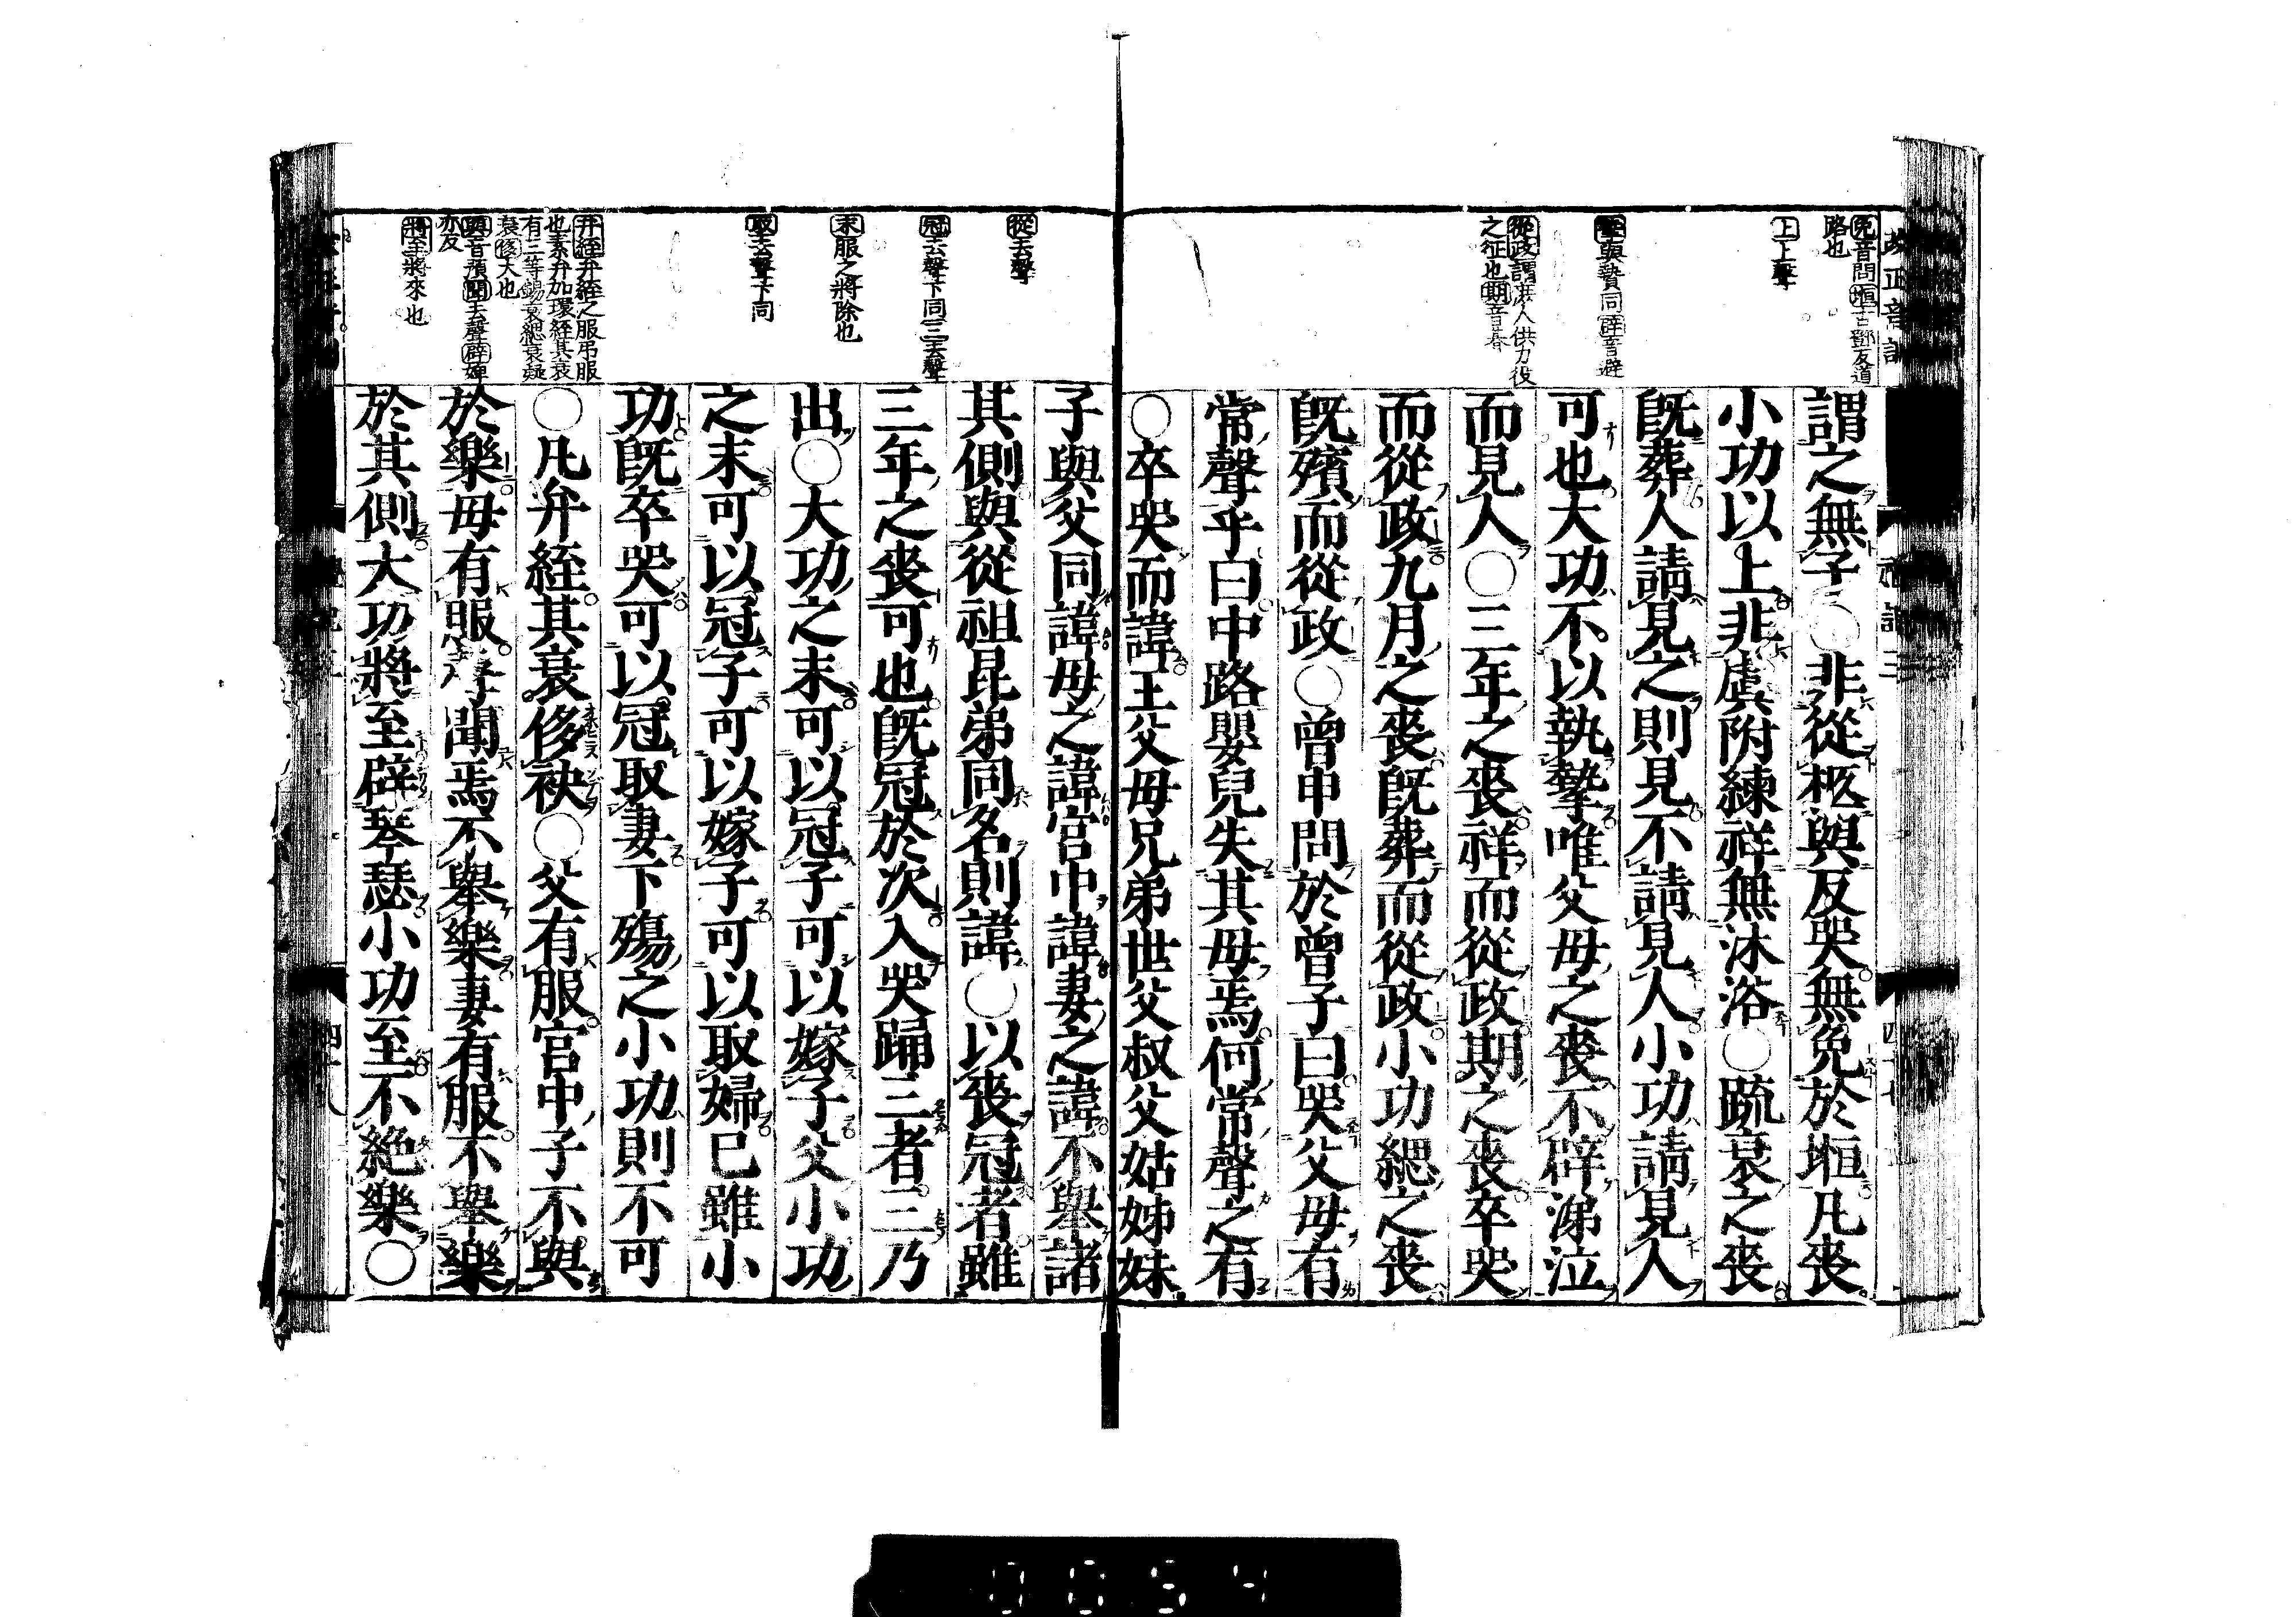 免音問堩古鄧反道
路也
上上聲
摯與贄同辟音避
從政謂庶人供力役
之征也期音春
謂之無子○非從柩與反哭無免於堩凡喪
小功以上非虞附練祥無沐浴○疏衰之喪
旣葬人請見之則見不請見人小功請見人
可也大功不以執摯唯父母之喪不辟涕泣
而見人○三年之喪祥而從政期之喪卒哭
而從政九月之喪旣葬而從政小功緦之喪
旣殯而從政○曾申問於曾子曰哭父母有
常聲乎曰中路嬰兒失其母焉何常聲之有
○卒哭而諱王父母兄弟世父叔父姑姊妹
從去聲
冠去聲下同三去聲
末服之將除也
取去聲下同
弁絰弁絰之服弔服
也素弁加環絰其衰
有三等錫衰緦衰疑
衰侈大也
與音預聞去聲辟婢
亦反
將至將來也
子與父同諱母之諱宮中諱妻之諱不舉諸
其側與從祖昆弟同名則諱○以喪冠者雖
三年之喪可也旣冠於次入哭踊三者三乃
出○大功之末可以冠子可以嫁子父小功
之末可以冠子可以嫁子可以取婦己雖小
功旣卒哭可以冠取妻下殤之小功則不可
○凡弁絰其衰侈袂○父有服宮中子不與
於樂母有服聲聞焉不舉樂妻有服不舉樂
於其側大功將至辟琴瑟小功至不絶樂○
四十八
0054